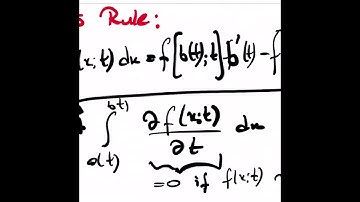 s Rule:
(x;t) dx = f[b(t);t] b'(t) - f
∫ b(t) a(t) ∂f(x;t)/∂t dx
=0 if f(x;t)